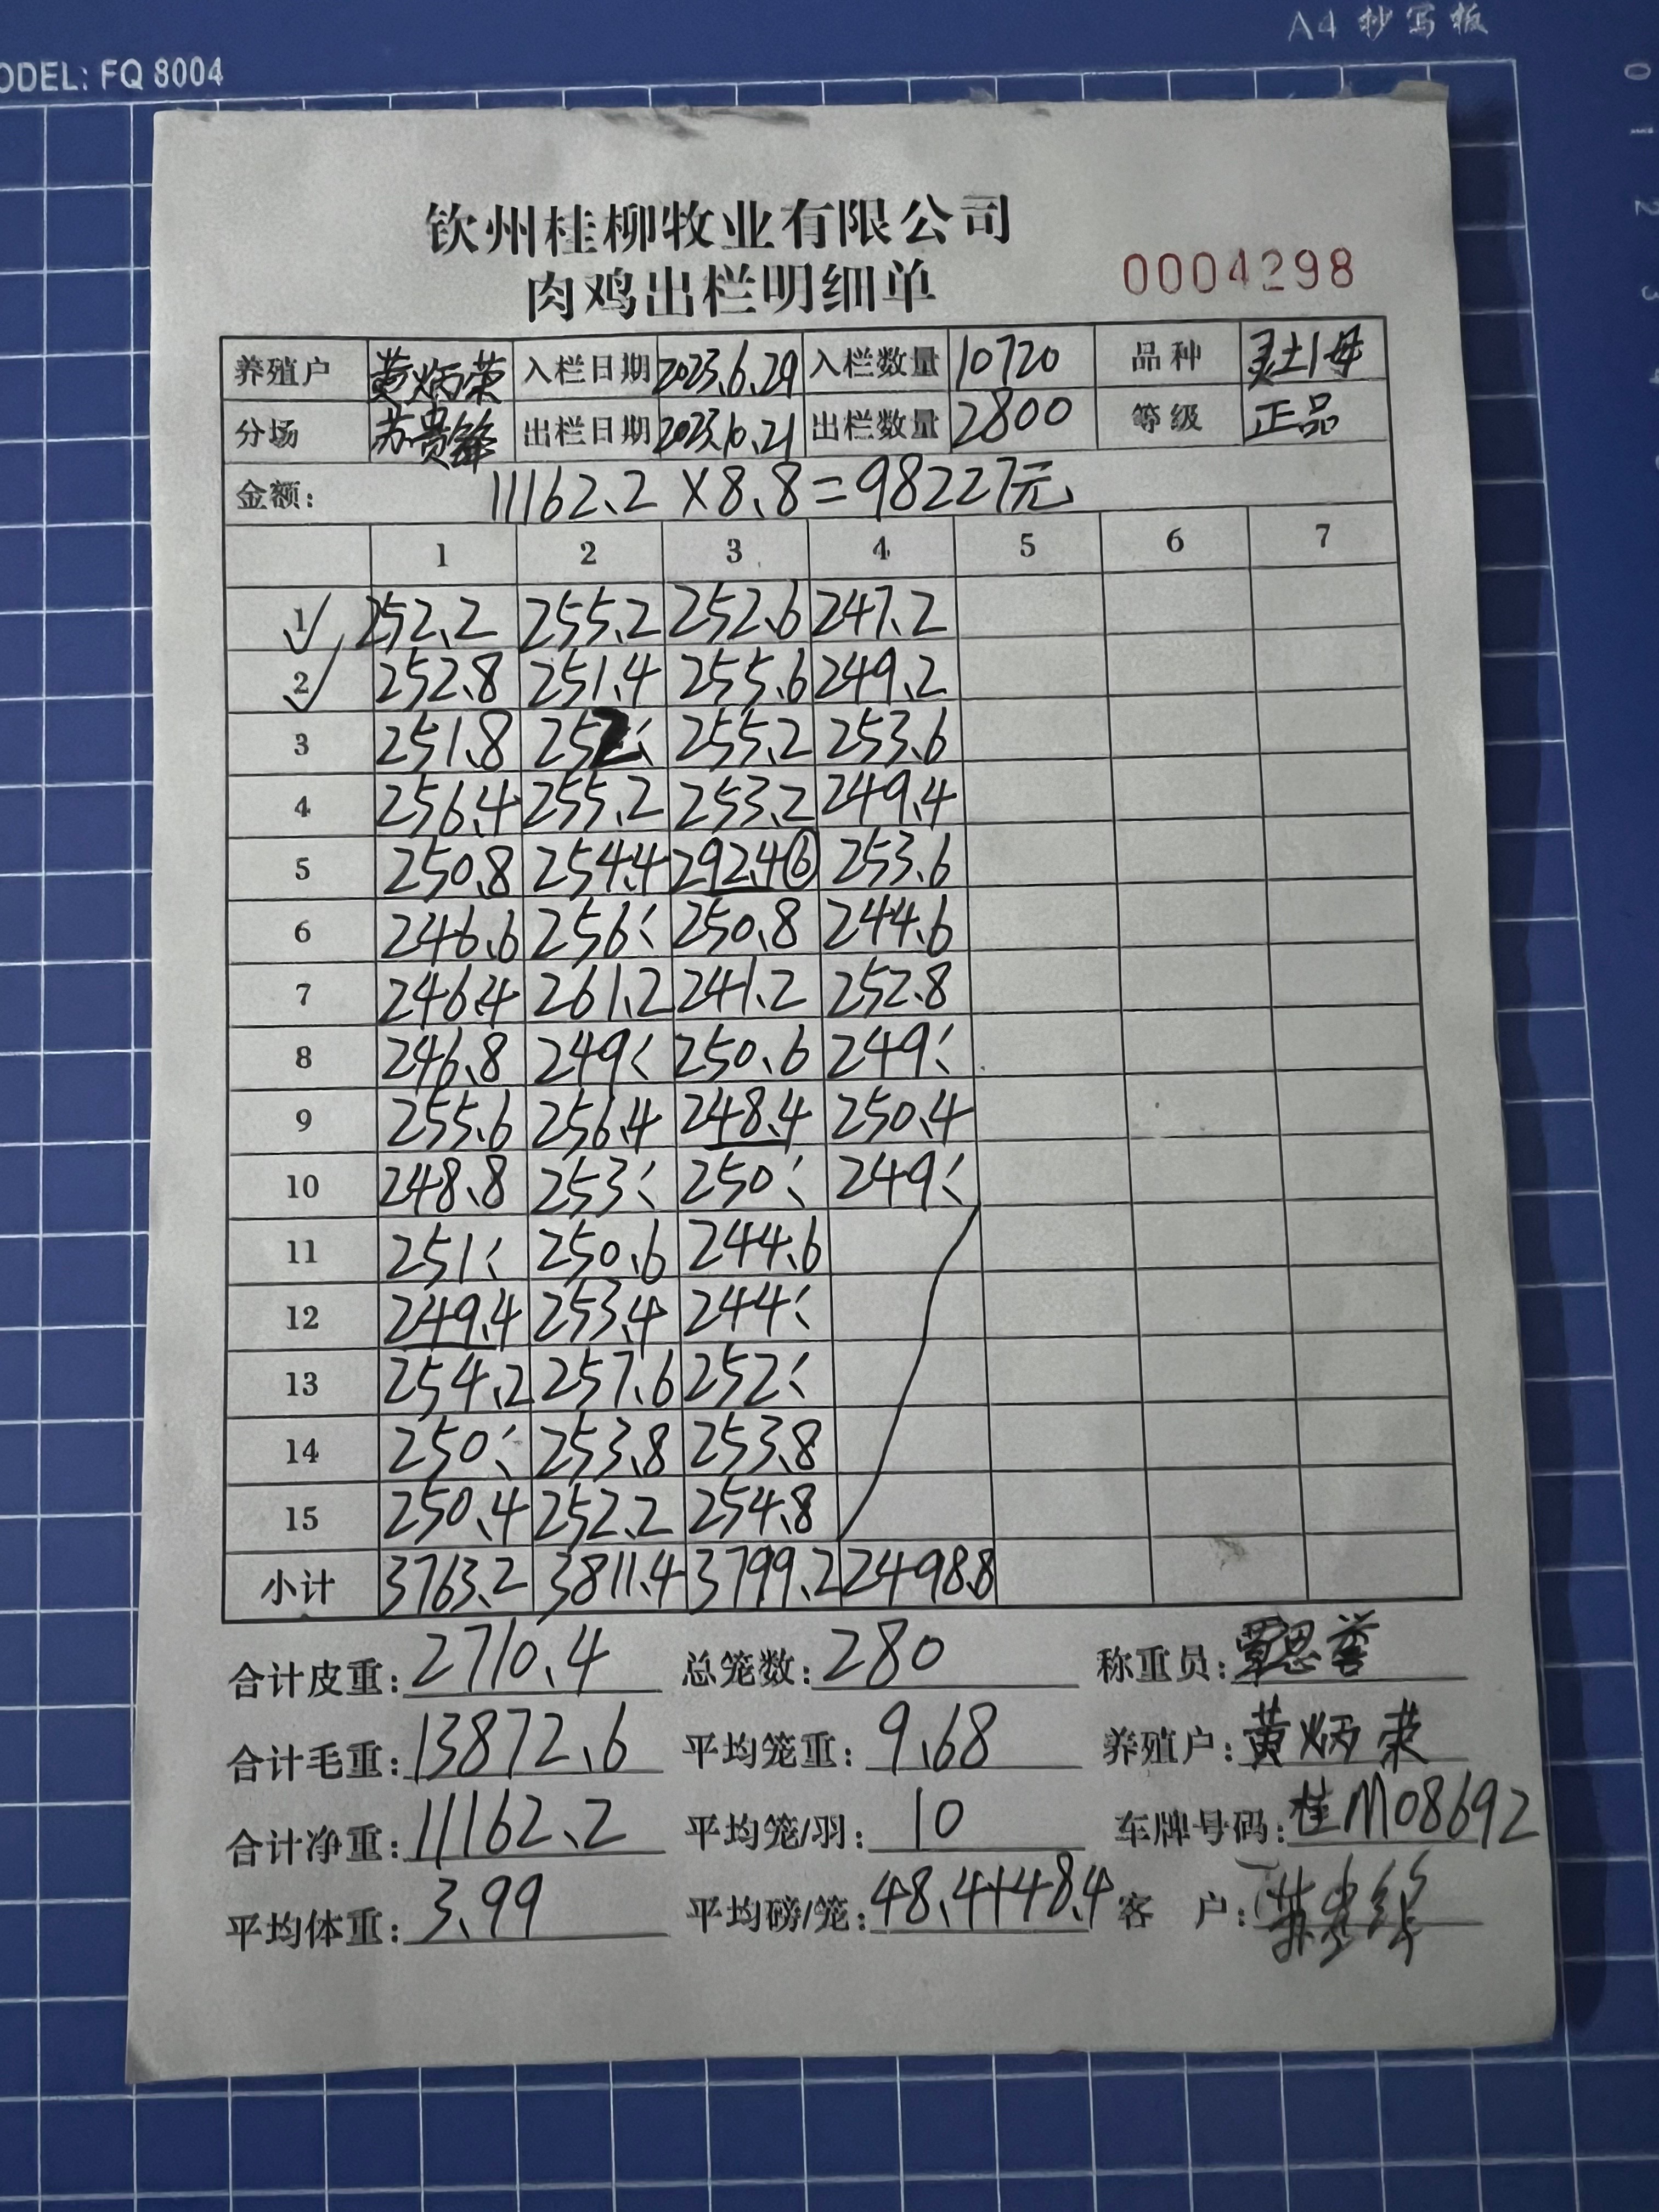 A4 抄写板
ODEL: FQ 8004
0 1 2 3 4
钦州桂柳牧业有限公司
肉鸡出栏明细单 0004298
养殖户 黄炳荣 入栏日期 2023.6.29 入栏数量 10720 品种 灵土1母
分场 苏贵锋 出栏日期 2023.10.21 出栏数量 2800 等级 正品
金额: 11162.2×8.8=98227元
1 2 3 4 5 6 7
1 252.2 255.2 252.6 247.2
2 252.8 251.4 255.6 249.2
3 251.8 252 255.2 253.6
4 256.4 255.2 253.2 249.4
5 250.8 254.4 292.4⑥ 253.6
6 246.6 256 250.8 244.6
7 246.4 261.2 241.2 252.8
8 246.8 249 250.6 249
9 255.6 256.4 248.4 250.4
10 248.8 253 250 249
11 251 250.6 244.6
12 249.4 253.4 244
13 254.2 257.6 252
14 250 253.8 253.8
15 250.4 252.2 254.8
小计 3763.2 3811.4 3799.2 2498.8
合计皮重: 2710.4 总笼数: 280 称重员: 覃思誉
合计毛重: 13872.6 平均笼重: 9.68 养殖户: 黄炳荣
合计净重: 11162.2 平均笼/羽: 10 车牌号码: 桂M08692
平均体重: 3.99 平均磅/笼: 48.4+48.4 客 户: